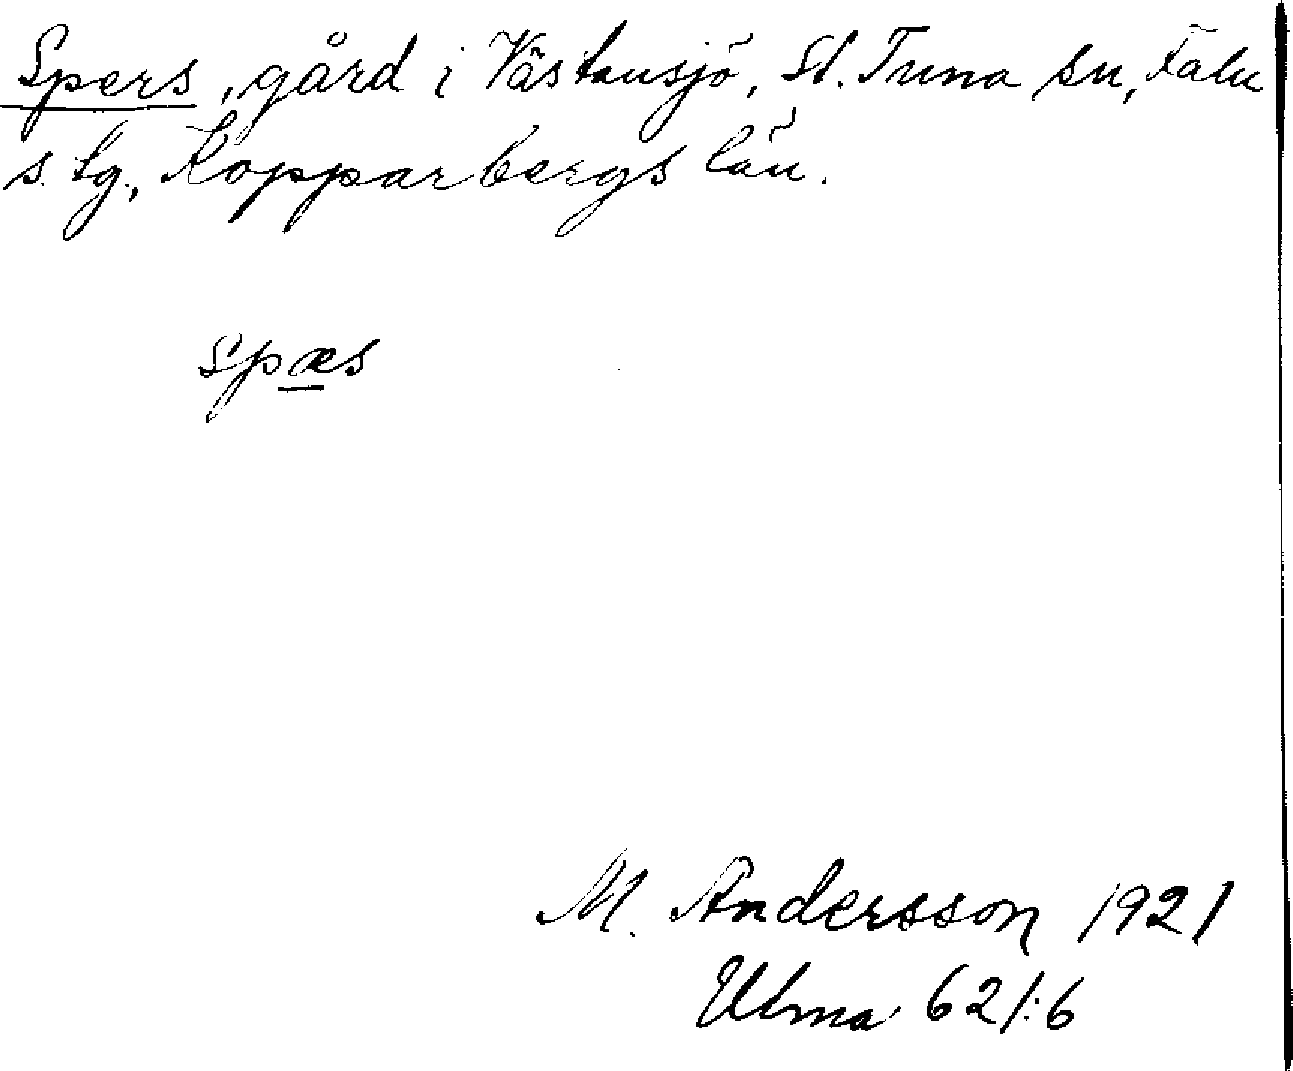 Spers, gård i Västansjö, St. Tuna sn, Falu
s. tg., Kopparbergs län.
spæs
M. Andersson 1921
Ulma 621:6